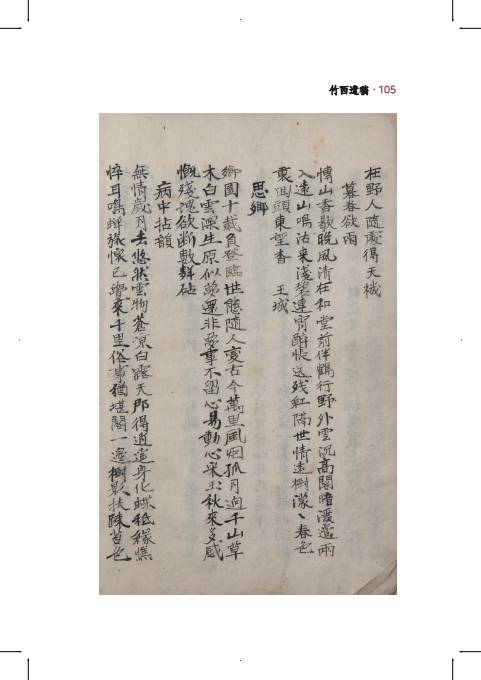 竹西遺稿 · 105
枉野人隨處得天機
暮春欲雨
傳山香歇晩風清枉和堂前伴鶴行野外雲沉高閣暗漫邊雨
入遠山鳴沽來淺碧連宵醉悵送残紅隔世情遠樹濛〻春色
裏回頭東望杳 王城
思鄉
鄉園十載負登臨世態隨人変古今萬里風烟孤月逈千山草
木白雲深生原似夢還非夢事不留心易動心宋玉秋來多感
慨殘深欲断數聲砧
病中拈韻
無情歲月去悠然雲物蒼凉白露天那得逍遥身化蝶秪緣憔
悴耳鳴蟬襟懐已   來千里俗事猶堪閣一邊樹影扶踈苔色